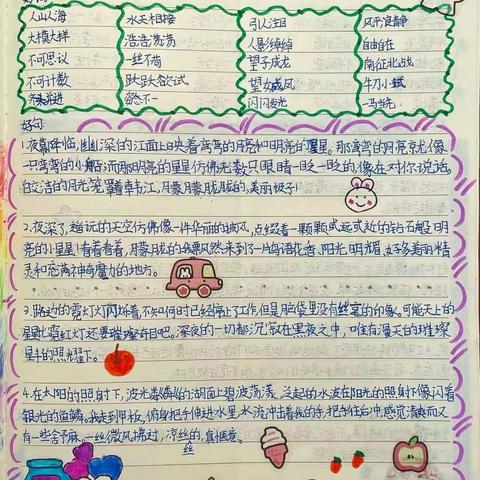 人山人海 水天相接 引人注目 风平浪静
大模大样 浩浩荡荡 人影绰绰 自由自在
不可思议 一丝不苟 望子成龙 南征北战
不可计数 跃跃欲试 威风 牛刀小试
齐头并进 不一 闪闪发光 一马当先
好句:
1.夜幕降临,幽深的江面上映着弯弯的月亮和明亮的星星。那弯弯的月亮就像
一只弯弯的小船;而那明亮的星星仿佛无数只眼睛一眨一眨的,像在对你说话。
皎洁的月光笼罩着韩江,朦朦胧胧的,美丽极了!
2.夜深了,遥远的天空仿佛像一件华丽的披风,点缀着一颗颗或远或近的钻石般明
亮的小星星!看着看着,朦胧的我飘然来到了一片鸟语花香、阳光明媚、好多美丽精
灵和充满神奇魔力的地方。
3.路边的霓灯火闪烁着,不知何时已经常上了工作,但是脑袋里没有丝毫的印象。可能天上的
星比霓虹灯还要璀璨夺目吧。深夜的一切都沉散在黑夜之中,唯有漫天的璀璨
星斗的照耀下。
4.在太阳的照射下,波光粼粼的湖面上碧波荡漾,泛起的水波在阳光的照射下像闪着
银光的鱼鳞。我走到甲板,俯身把手伸进水里,水流冲击着我的手,把手往后冲,感觉清爽而又
有一些含麻。一丝微风拂过,凉丝的,真惬意。
丝